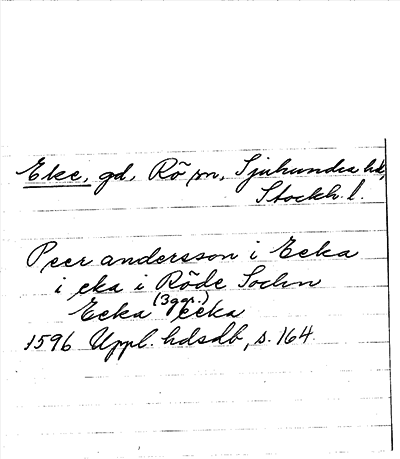 Eke, gd, Rö sn, Sjuhundra hd,
Stockh. l.
Peer andersson i Ecka
i eka i Röde Sochn
Ecka (3 ggr.) ecka
1596 Uppl. hdsdb, s. 164.